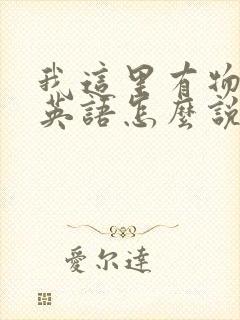 我這里有物
英語怎麼說
愛尔達